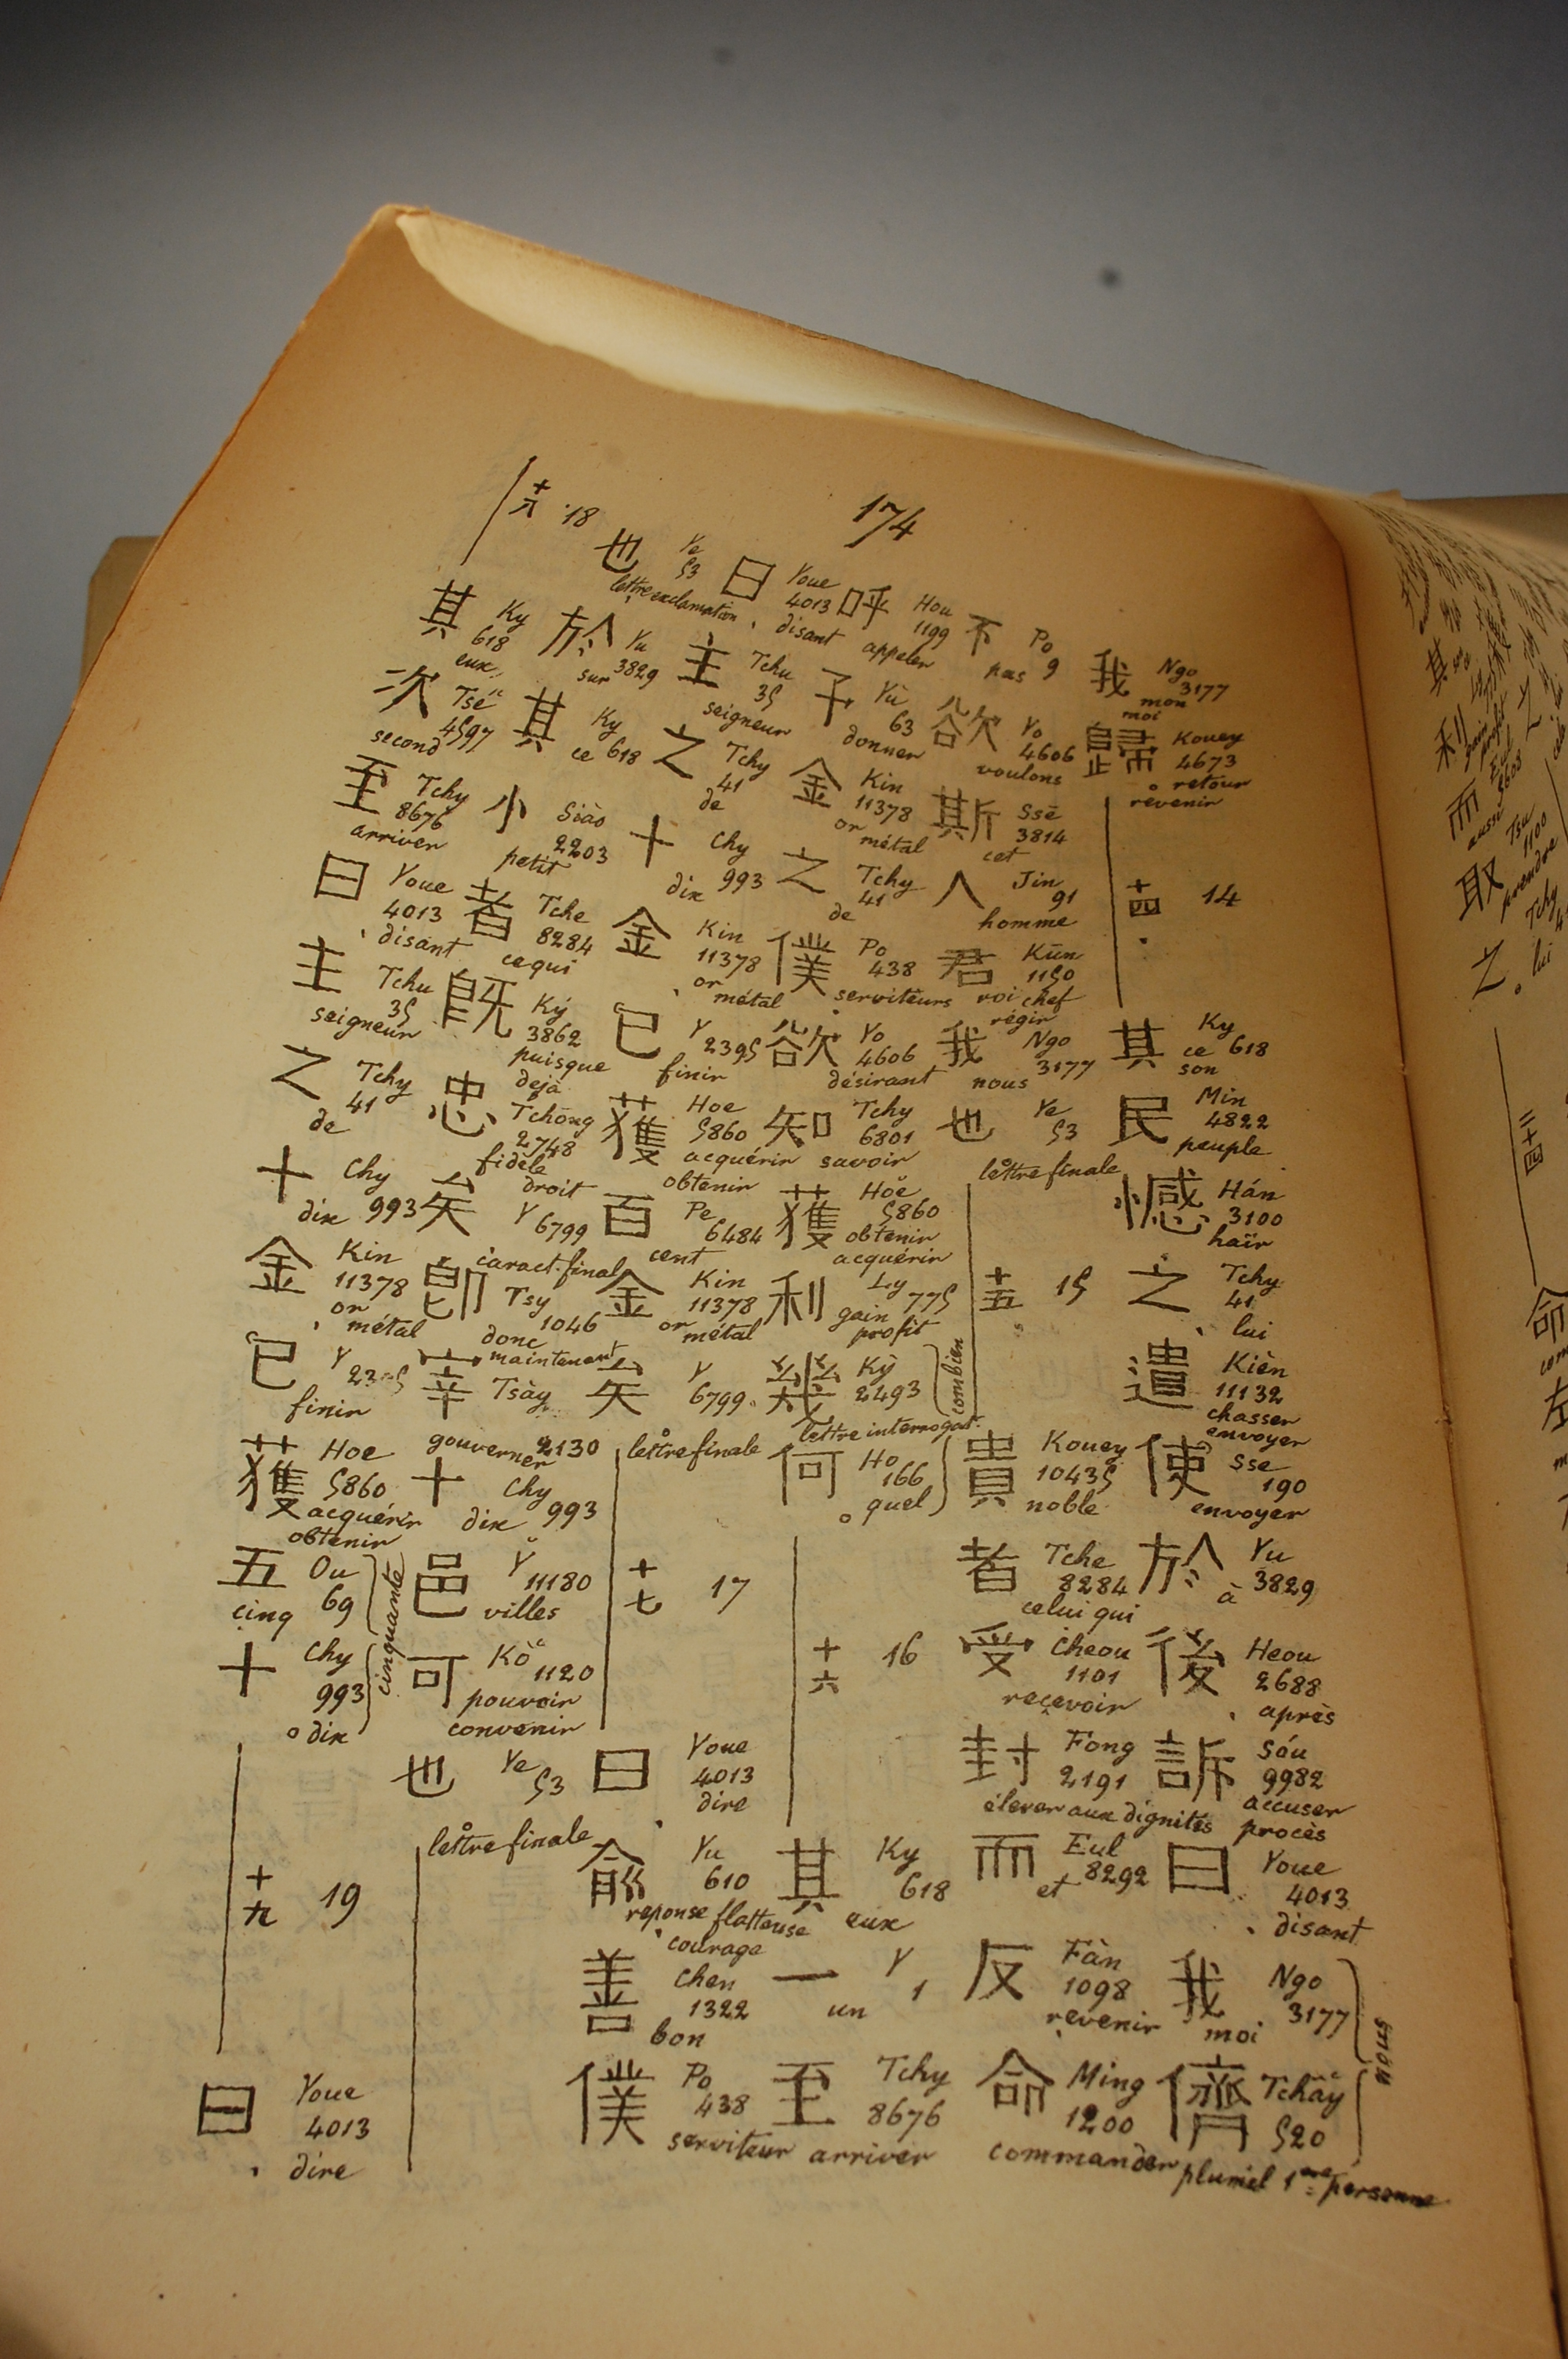 174
我 Ngo 3177 mon moi
歸 Kouey 4673 retour revenir
十四 14
其 Ky ce 618 son
民 Min 4822 peuple
憾 Hán 3100 haïr
之 Tchy 41 lui
遣 Kièn 11132 chasser envoyer
使 Sse 190 envoyer
於 Yu 3829 à
後 Heou 2688 après
訴 Sóu 9982 accuser procès
曰 Youe 4013 disant
我 Ngo 3177 moi
儕 Tchăy 520 pluriel 1ère personne
nous
不 Po pas 9
欲 Yo 4606 voulons
斯 Ssē 3814 cet
人 Jin 91 homme
君 Kūn 1150 roi chef régir
我 Ngo 3177 nous
也 Ye 53 lettre finale
十五 15
貴 Kouey 10435 noble
者 Tche 8284 celui qui
受 Cheou 1101 recevoir
封 Fong 2191 élever aux dignités
而 Eul 8292 et
反 Fàn 1098 revenir
命 Ming 1200 commander
呼 Hou 1199 appeler
予 Yù 63 donner
金 Kin 11378 or métal
之 Tchy 41 de
僕 Po 438 serviteurs
欲 Yo 4606 désirant
知 Tchy 6801 savoir
獲 Hoĕ 5860 obtenir acquérir
利 Ly 775 gain profit
幾 Kỳ 2493 lettre interrogat.
何 Ho 166 quel
combien
十六 16
其 Ky 618 eux
一 Y un 1
至 Tchy 8676 arriver
曰 Youe 4013 disant
主 Tchu 35 seigneur
之 Tchy 41 de
十 Chy dix 993
金 Kin 11378 or métal
已 Y 2395 finir
獲 Hoe 5860 acquérir obtenir
百 Pe 6484 cent
金 Kin 11378 or métal
矣 Y 6799 lettre finale
十七 17
曰 Youe 4013 dire
俞 Yu 610 reponse flatteuse courage
善 Chen 1322 bon
僕 Po 438 serviteur
也 Ye 53 lettre exclamation
於 Yu sur 3829
其 Ky ce 618
小 Siào 2203 petit
者 Tche 8284 ce qui
既 Ký 3862 puisque dejà
忠 Tchōng 2748 fidèle droit
矣 Y 6799 caract. final
即 Tsy 1046 donc maintenant
宰 Tsày gouverner 2130
十 Chy dix 993
邑 Y 11180 villes
可 Kŏ 1120 pouvoir convenir
也 Ye 53 lettre finale
十八 18
其 Ky 618 eux
次 Tsé 4597 second
至 Tchy 8676 arriver
曰 Youe 4013 disant
主 Tchu 35 seigneur
之 Tchy 41 de
十 Chy dix 993
金 Kin 11378 or métal
已 Y 2395 finir
獲 Hoe 5860 acquérir obtenir
五 Ou cinq 69
十 Chy 993 dix
cinquante
十九 19
曰 Youe 4013 dire